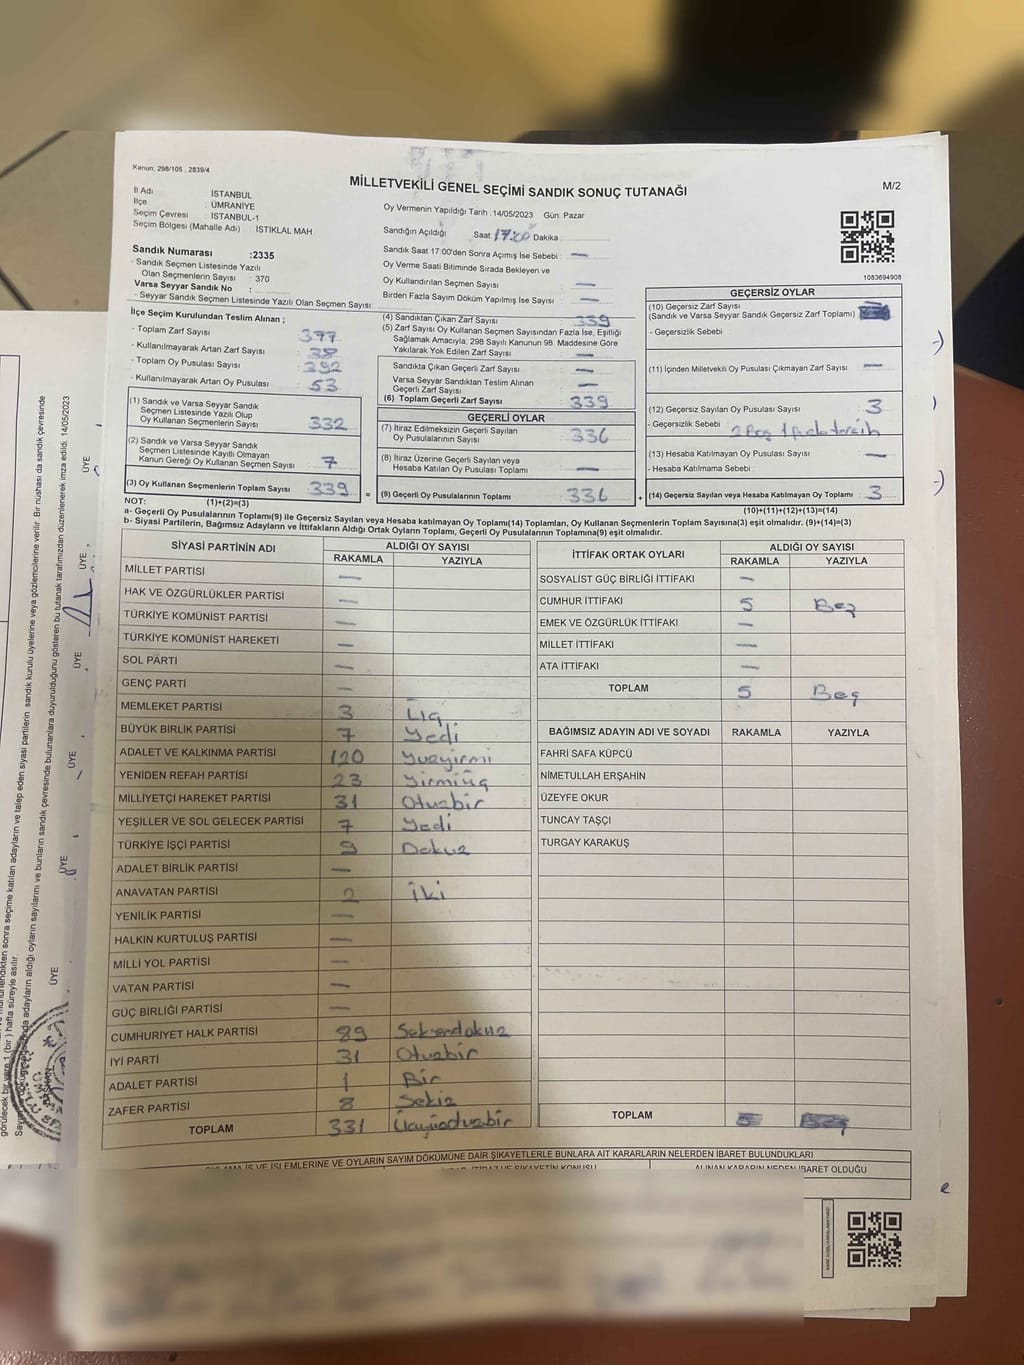 Kanun: 298/105 , 2839/4
MİLLETVEKİLİ GENEL SEÇİMİ SANDIK SONUÇ TUTANAĞI
M/2
İl Adı : İSTANBUL
İlçe : ÜMRANİYE
Seçim Çevresi : İSTANBUL-1
Seçim Bölgesi (Mahalle Adı) : İSTİKLAL MAH
Oy Vermenin Yapıldığı Tarih :14/05/2023 Gün: Pazar
Sandığın Açıldığı Saat 17:00 Dakika
Sandık Saat 17:00'den Sonra Açımış İse Sebebi : —
Oy Verme Saati Bitiminde Sırada Bekleyen ve
Oy Kullandırılan Seçmen Sayısı : —
Birden Fazla Sayım Döküm Yapılmış İse Sayısı : —
1083694908
Sandık Numarası :2335
- Sandık Seçmen Listesinde Yazılı
Olan Seçmenlerin Sayısı : 370
Varsa Seyyar Sandık No :
- Seyyar Sandık Seçmen Listesinde Yazılı Olan Seçmen Sayısı:
İlçe Seçim Kurulundan Teslim Alınan ;
- Toplam Zarf Sayısı : 377
- Kullanılmayarak Artan Zarf Sayısı : 38
- Toplam Oy Pusulası Sayısı : 392
- Kullanılmayarak Artan Oy Pusulası : 53
(1) Sandık ve Varsa Seyyar Sandık
Seçmen Listesinde Yazılı Olup
Oy Kullanan Seçmenlerin Sayısı : 332
(2) Sandık ve Varsa Seyyar Sandık
Seçmen Listesinde Kayıtlı Olmayan
Kanun Gereği Oy Kullanan Seçmen Sayısı : 7
(3) Oy Kullanan Seçmenlerin Toplam Sayısı : 339
(1)+(2)=(3)
(4) Sandıktan Çıkan Zarf Sayısı : 339
(5) Zarf Sayısı Oy Kullanan Seçmen Sayısından Fazla İse, Eşitliği
Sağlamak Amacıyla, 298 Sayılı Kanunun 98. Maddesine Göre
Yakılarak Yok Edilen Zarf Sayısı : —
Sandıkta Çıkan Geçerli Zarf Sayısı : —
Varsa Seyyar Sandıktan Teslim Alınan
Geçerli Zarf Sayısı : —
(6) Toplam Geçerli Zarf Sayısı : 339
GEÇERLİ OYLAR
(7) İtiraz Edilmeksizin Geçerli Sayılan
Oy Pusulalarının Sayısı : 336
(8) İtiraz Üzerine Geçerli Sayılan veya
Hesaba Katılan Oy Pusulası Toplamı : —
= (9) Geçerli Oy Pusulalarının Toplamı : 336 +
GEÇERSİZ OYLAR
(10) Geçersiz Zarf Sayısı
(Sandık ve Varsa Seyyar Sandık Geçersiz Zarf Toplamı) :
- Geçersizlik Sebebi :
(11) İçinden Milletvekili Oy Pusulası Çıkmayan Zarf Sayısı : —
(12) Geçersiz Sayılan Oy Pusulası Sayısı : 3
- Geçersizlik Sebebi : 2 Boş 1 Fazla tercih
(13) Hesaba Katılmayan Oy Pusulası Sayısı : —
- Hesaba Katılmama Sebebi :
(14) Geçersiz Sayılan veya Hesaba Katılmayan Oy Toplamı : 3
(10)+(11)+(12)+(13)=(14)
NOT:
a- Geçerli Oy Pusulalarının Toplamı(9) ile Geçersiz Sayılan veya Hesaba katılmayan Oy Toplamı(14) Toplamları, Oy Kullanan Seçmenlerin Toplam Sayısına(3) eşit olmalıdır. (9)+(14)=(3)
b- Siyasi Partilerin, Bağımsız Adayların ve İttifakların Aldığı Oyların Toplamı, Geçerli Oy Pusulalarının Toplamına(9) eşit olmalıdır.
SİYASİ PARTİNİN ADI ALDIĞI OY SAYISI
RAKAMLA YAZIYLA
MİLLET PARTİSİ —
HAK VE ÖZGÜRLÜKLER PARTİSİ —
TÜRKİYE KOMÜNİST PARTİSİ —
TÜRKİYE KOMÜNİST HAREKETİ —
SOL PARTİ —
GENÇ PARTİ —
MEMLEKET PARTİSİ 3 Üç
BÜYÜK BİRLİK PARTİSİ 7 Yedi
ADALET VE KALKINMA PARTİSİ 120 Yüzyirmi
YENİDEN REFAH PARTİSİ 23 Yirmiüç
MİLLİYETÇİ HAREKET PARTİSİ 31 Otuzbir
YEŞİLLER VE SOL GELECEK PARTİSİ 7 Yedi
TÜRKİYE İŞÇİ PARTİSİ 9 Dokuz
ADALET BİRLİK PARTİSİ —
ANAVATAN PARTİSİ 2 İki
YENİLİK PARTİSİ —
HALKIN KURTULUŞ PARTİSİ —
MİLLİ YOL PARTİSİ —
VATAN PARTİSİ —
GÜÇ BİRLİĞİ PARTİSİ —
CUMHURİYET HALK PARTİSİ 89 Seksendokuz
İYİ PARTİ 31 Otuzbir
ADALET PARTİSİ 1 Bir
ZAFER PARTİSİ 8 Sekiz
TOPLAM 331 Üçyüzotuzbir
İTTİFAK ORTAK OYLARI ALDIĞI OY SAYISI
RAKAMLA YAZIYLA
SOSYALİST GÜÇ BİRLİĞİ İTTİFAKI —
CUMHUR İTTİFAKI 5 Beş
EMEK VE ÖZGÜRLÜK İTTİFAKI —
MİLLET İTTİFAKI —
ATA İTTİFAKI —
TOPLAM 5 Beş
BAĞIMSIZ ADAYIN ADI VE SOYADI RAKAMLA YAZIYLA
FAHRİ SAFA KÜPCÜ
NİMETULLAH ERŞAHİN
ÜZEYFE OKUR
TUNCAY TAŞÇI
TURGAY KARAKUŞ
TOPLAM
OYLAMA İŞ VE İŞLEMLERİNE VE OYLARIN SAYIM DÖKÜMÜNE DAİR ŞİKAYETLERLE BUNLARA AİT KARARLARIN NELERDEN İBARET BULUNDUKLARI
ALINAN KARARIN NEDEN İBARET OLDUĞU
görülecek bir yere 1 (bir) hafta süreyle asılır.
14/05/2023
ÜYE
ÜYE
ÜYE
ÜYE
ÜYE
ÜYE